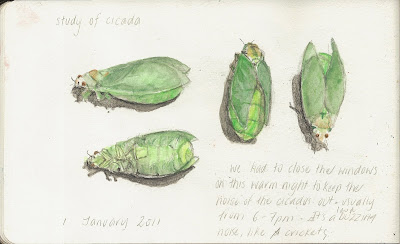 study of cicada
we had to close the windows
on this warm night to keep the
noise of the cicadas out - usually
from 6-7pm - It's a buzzing
noise, like crickets.
1 January 2011